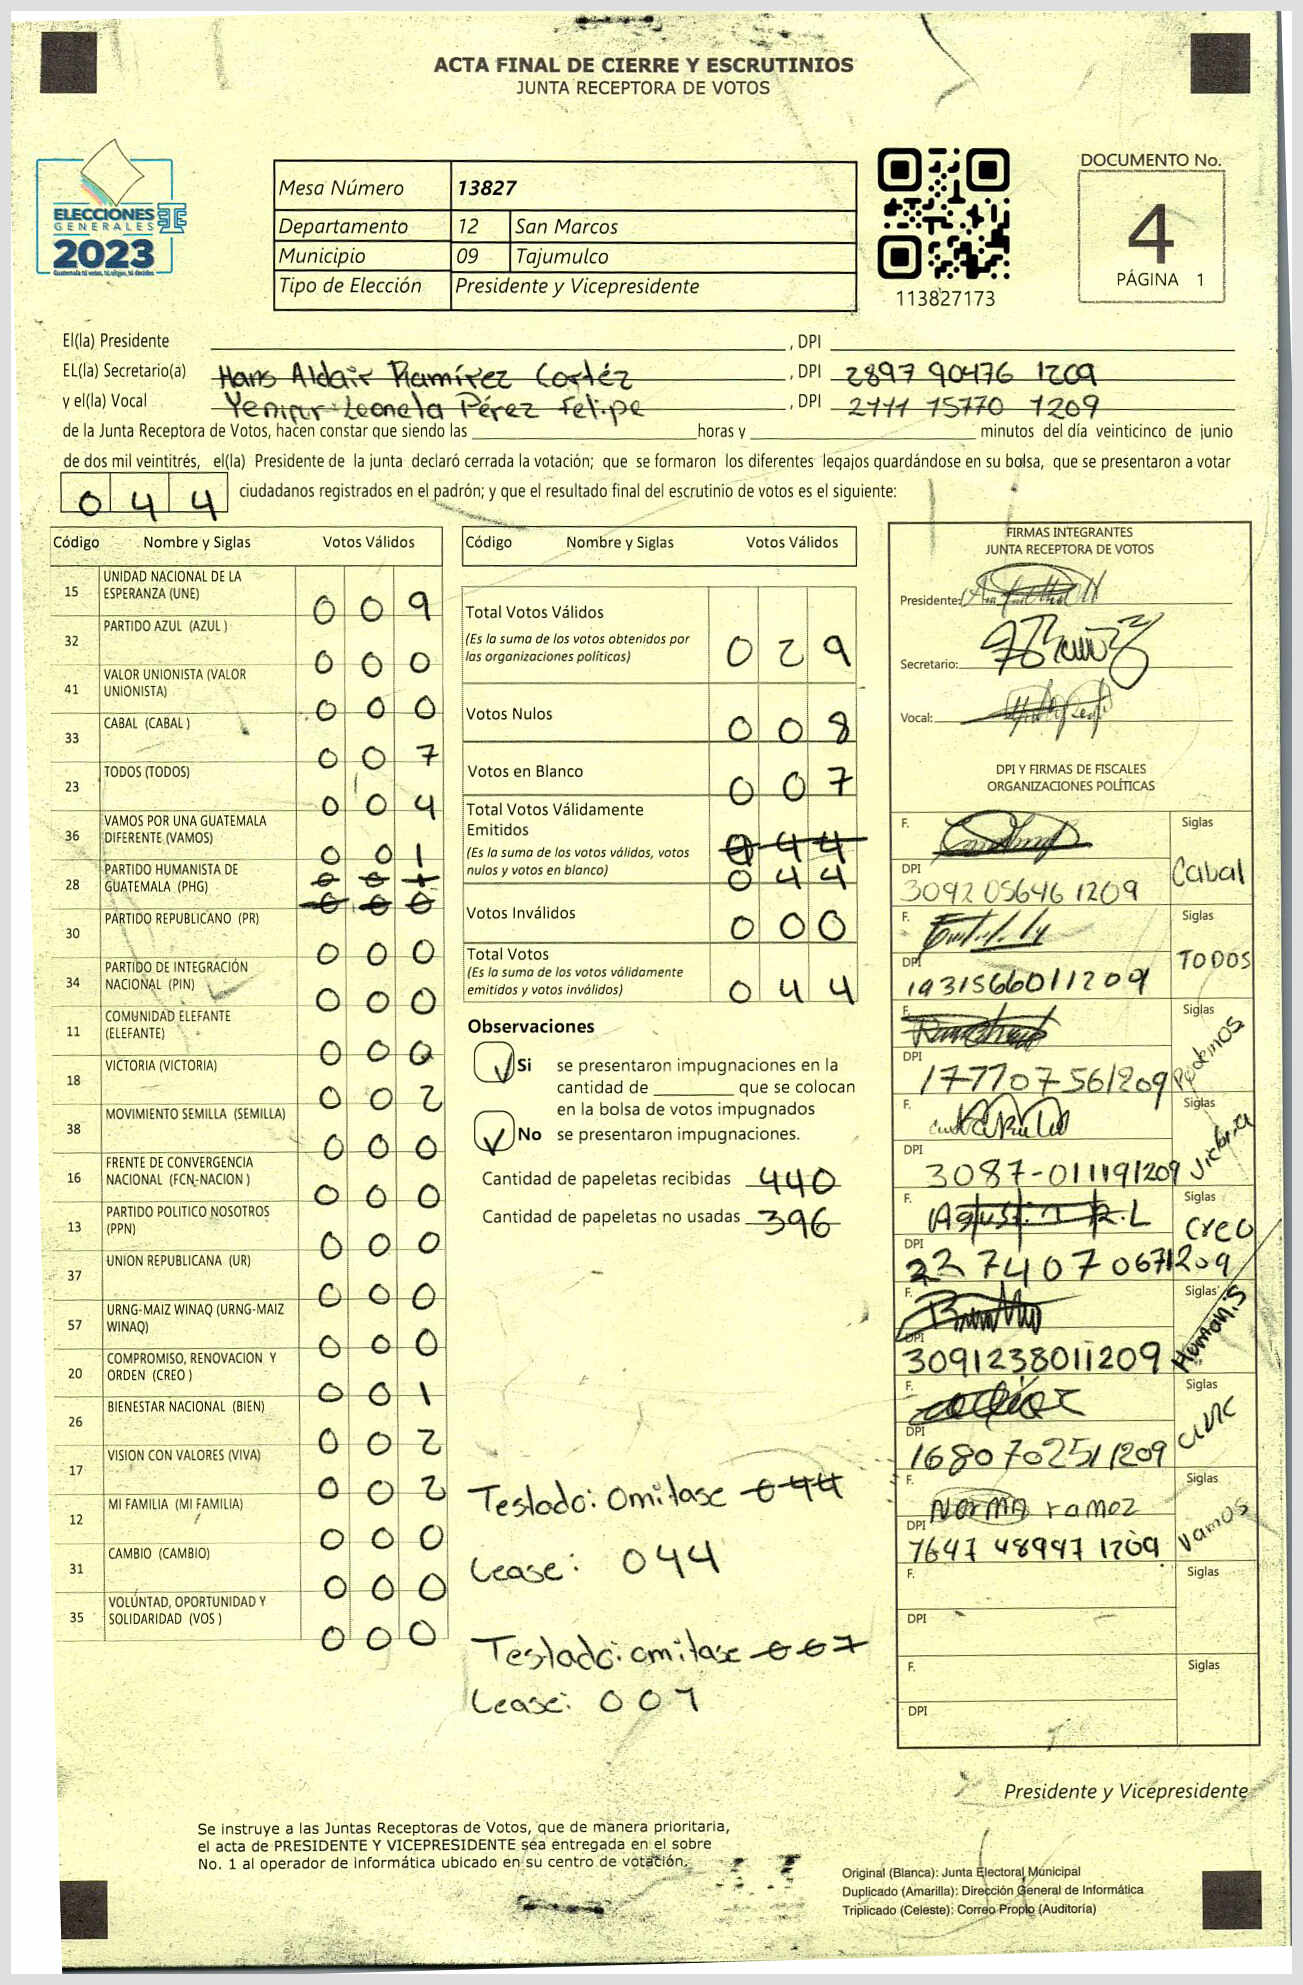 ACTA FINAL DE CIERRE Y ESCRUTINIOS
JUNTA RECEPTORA DE VOTOS
ELECCIONES
GENERALES
2023
Guatemala tú votas, tú eliges, tú decides
Mesa Número 13827
Departamento 12 San Marcos
Municipio 09 Tajumulco
Tipo de Elección Presidente y Vicepresidente
113827173
DOCUMENTO No.
4
PÁGINA 1
El(la) Presidente , DPI
EL(la) Secretario(a) Hans Aldair Ramírez Cortéz , DPI 2897 90476 1209
y el(la) Vocal Leonela Pérez Felipe , DPI 15770 1209
de la Junta Receptora de Votos, hacen constar que siendo las horas y minutos del día veinticinco de junio
de dos mil veintitrés, el(la) Presidente de la junta declaró cerrada la votación; que se formaron los diferentes legajos guardándose en su bolsa, que se presentaron a votar
044 ciudadanos registrados en el padrón; y que el resultado final del escrutinio de votos es el siguiente:
Código Nombre y Siglas Votos Válidos
15 UNIDAD NACIONAL DE LA ESPERANZA (UNE) 009
32 PARTIDO AZUL (AZUL ) 000
41 VALOR UNIONISTA (VALOR UNIONISTA) 000
33 CABAL (CABAL ) 007
23 TODOS (TODOS) 004
36 VAMOS POR UNA GUATEMALA DIFERENTE (VAMOS) 001
28 PARTIDO HUMANISTA DE GUATEMALA (PHG) 001 000
30 PARTIDO REPUBLICANO (PR) 000
34 PARTIDO DE INTEGRACIÓN NACIONAL (PIN) 000
11 COMUNIDAD ELEFANTE (ELEFANTE) 000
18 VICTORIA (VICTORIA) 002
38 MOVIMIENTO SEMILLA (SEMILLA) 000
16 FRENTE DE CONVERGENCIA NACIONAL (FCN-NACION ) 000
13 PARTIDO POLITICO NOSOTROS (PPN) 000
37 UNION REPUBLICANA (UR) 000
57 URNG-MAIZ WINAQ (URNG-MAIZ WINAQ) 000
20 COMPROMISO, RENOVACION Y ORDEN (CREO ) 001
26 BIENESTAR NACIONAL (BIEN) 002
17 VISION CON VALORES (VIVA) 002
12 MI FAMILIA (MI FAMILIA) 000
31 CAMBIO (CAMBIO) 000
35 VOLUNTAD, OPORTUNIDAD Y SOLIDARIDAD (VOS ) 000
Código Nombre y Siglas Votos Válidos
Total Votos Válidos 029
(Es la suma de los votos obtenidos por
las organizaciones políticas)
Votos Nulos 008
Votos en Blanco 007
Total Votos Válidamente
Emitidos 044
(Es la suma de los votos válidos, votos
nulos y votos en blanco) 044
Votos Inválidos 000
Total Votos
(Es la suma de los votos válidamente
emitidos y votos inválidos) 044
Observaciones
Si se presentaron impugnaciones en la
cantidad de que se colocan
en la bolsa de votos impugnados
No se presentaron impugnaciones.
Cantidad de papeletas recibidas 440
Cantidad de papeletas no usadas 396
Testado: Omitase 044
Lease: 044
Testado: omitase 007
Lease: 001
FIRMAS INTEGRANTES
JUNTA RECEPTORA DE VOTOS
Presidente:
Secretario:
Vocal:
DPI Y FIRMAS DE FISCALES
ORGANIZACIONES POLÍTICAS
F. Siglas
DPI 3092 05646 1209 Cabal
F. Siglas
DPI 1931566011209 TODOS
F. Siglas
DPI 177707561209 Podemos
F. Siglas
DPI 3087-011191209 Victoria
F. Agustin R.L Siglas
DPI 2274070671209 Creo
F. Siglas
DPI 3091238011209
F. Siglas
DPI 1680702511209
F. Norma ramez Siglas
DPI 1209 Vamos
F. Siglas
DPI
F. Siglas
DPI
Presidente y Vicepresidente
Se instruye a las Juntas Receptoras de Votos, que de manera prioritaria,
el acta de PRESIDENTE Y VICEPRESIDENTE sea entregada en el sobre
No. 1 al operador de informática ubicado en su centro de votación.
Original (Blanca): Junta Electoral Municipal
Duplicado (Amarilla): Dirección General de Informática
Triplicado (Celeste): Correo Propio (Auditoría)